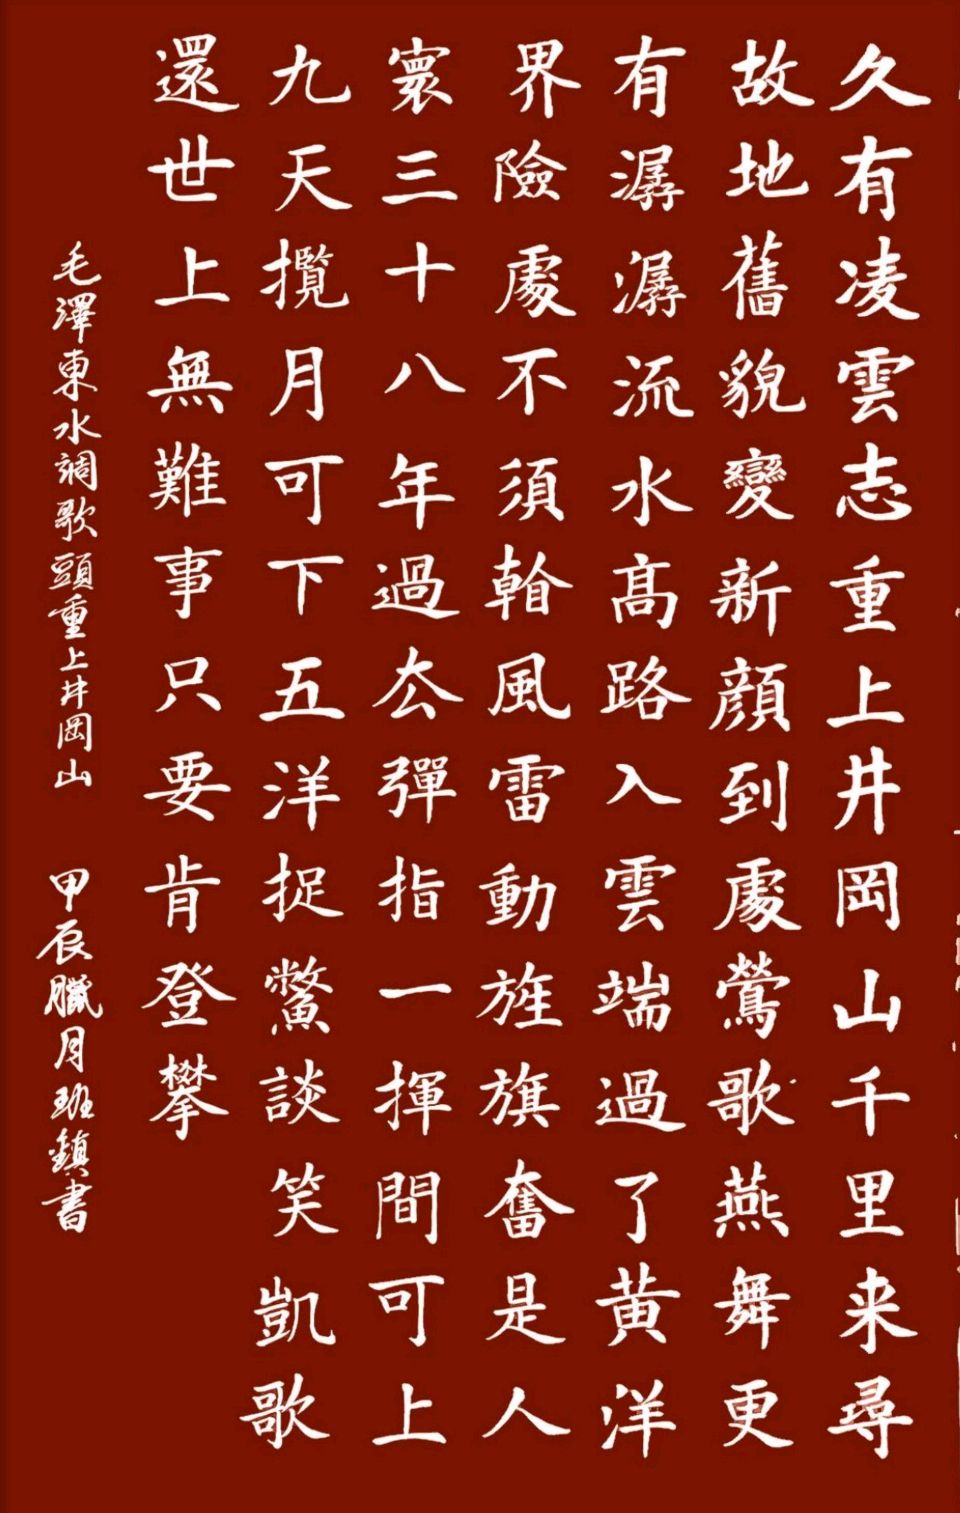 久有凌雲志重上井岡山千里来尋
故地舊貌變新顔到處鶯歌燕舞更
有潺潺流水髙路入雲端過了黄洋
界險處不須看風雷動旌旗奮是人
寰三十八年過厺彈指一揮間可上
九天攬月可下五洋捉鱉談笑凱歌
還世上無難事只要肯登攀
毛澤東水調歌頭重上井岡山 甲辰臘月班鎮書